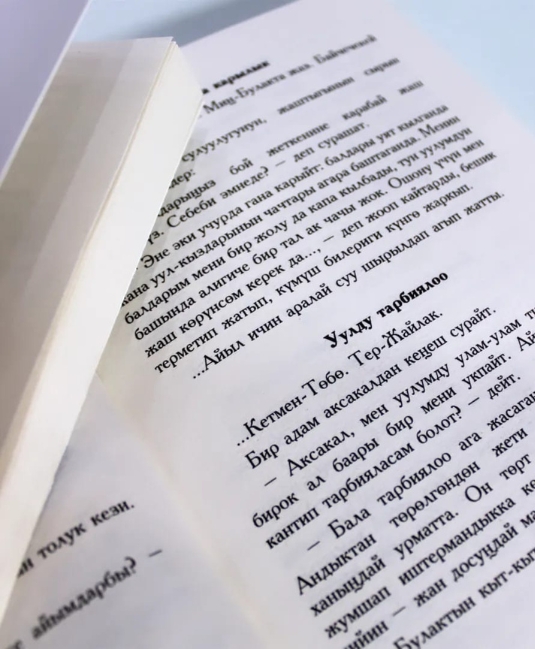 а карылык
Миң-Булакта жаз. Бийгечекей
сулуулугунун, жаштыгынын сырын
дер:
дарыңыз бой жеткенине карабай жаш
гз. Себеби эмнеде? — деп сурашат.
Эне эки учурда гана карыйт: балдары уят кылганда
кана уул-кыздарынын чачтары агара баштаганда. Менин
балдарым мени бир жолу да капа кылбады, тун уулумдун
башында алигиче бир тал ак чачы жок. Ошону үчүн мен
жаш көрүнсөм керек да..., — деп жооп кайтарды, бешик
терметип жатып, күмүш билериги күнгө жаркып.
...Айыл ичин аралай суу шырылдап агып жатты.
Уулду тарбиялоо
...Кетмен-Төбө. Тер-Жайлак.
Бир адам аксакалдан кеңеш сурайт.
— Аксакал, мен уулумду улам-улам
бирок ал баары бир мени укпайт.
кантип тарбияласам болот? — дейт.
— Бала тарбиялоо ага жасаган
Андыктан төрөлгөндөн жети
ханыңдай урматта. Он төрт
жумшап иштермандыкка
ийин — жан досуңдай
Булактын кыт-кыт
н толук кези.
е айымдарбы? —